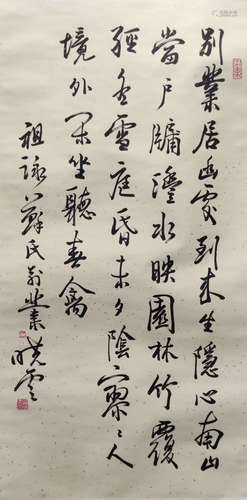 别業居幽處到来生隱心南山
當户牖灃水映園林竹覆
經冬雪庭昏未夕陰寥々人
境外閒坐聽春禽
祖詠蘇氏别業 曉雲